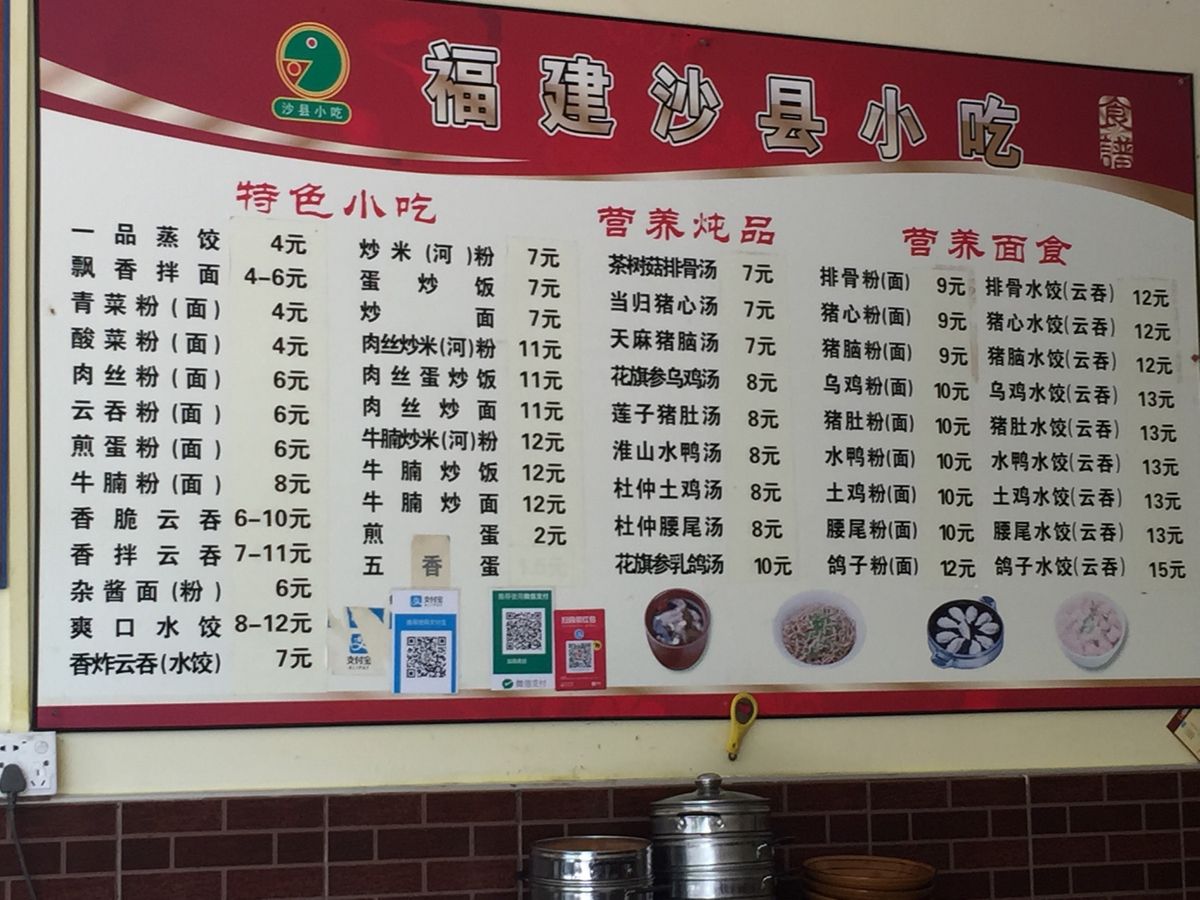 沙县小吃
福建沙县小吃
食谱
特色小吃
一品蒸饺 4元
飘香拌面 4-6元
青菜粉(面) 4元
酸菜粉(面) 4元
肉丝粉(面) 6元
云吞粉(面) 6元
煎蛋粉(面) 6元
牛腩粉(面) 8元
香脆云吞 6-10元
香拌云吞 7-11元
杂酱面(粉) 6元
爽口水饺 8-12元
香炸云吞(水饺) 7元
炒米(河)粉 7元
蛋炒饭 7元
炒面 7元
肉丝炒米(河)粉 11元
肉丝蛋炒饭 11元
肉丝炒面 11元
牛腩炒米(河)粉 12元
牛腩炒饭 12元
牛腩炒面 12元
煎蛋 2元
五香蛋
营养炖品
茶树菇排骨汤 7元
当归猪心汤 7元
天麻猪脑汤 7元
花旗参乌鸡汤 8元
莲子猪肚汤 8元
淮山水鸭汤 8元
杜仲土鸡汤 8元
杜仲腰尾汤 8元
花旗参乳鸽汤 10元
营养面食
排骨粉(面) 9元
猪心粉(面) 9元
猪脑粉(面) 9元
乌鸡粉(面) 10元
猪肚粉(面) 10元
水鸭粉(面) 10元
土鸡粉(面) 10元
腰尾粉(面) 10元
鸽子粉(面) 12元
排骨水饺(云吞) 12元
猪心水饺(云吞) 12元
猪脑水饺(云吞) 12元
乌鸡水饺(云吞) 13元
猪肚水饺(云吞) 13元
水鸭水饺(云吞) 13元
土鸡水饺(云吞) 13元
腰尾水饺(云吞) 13元
鸽子水饺(云吞) 15元
支付宝
支付宝
推荐使用支付宝
推荐使用微信支付
微信支付
扫码领红包